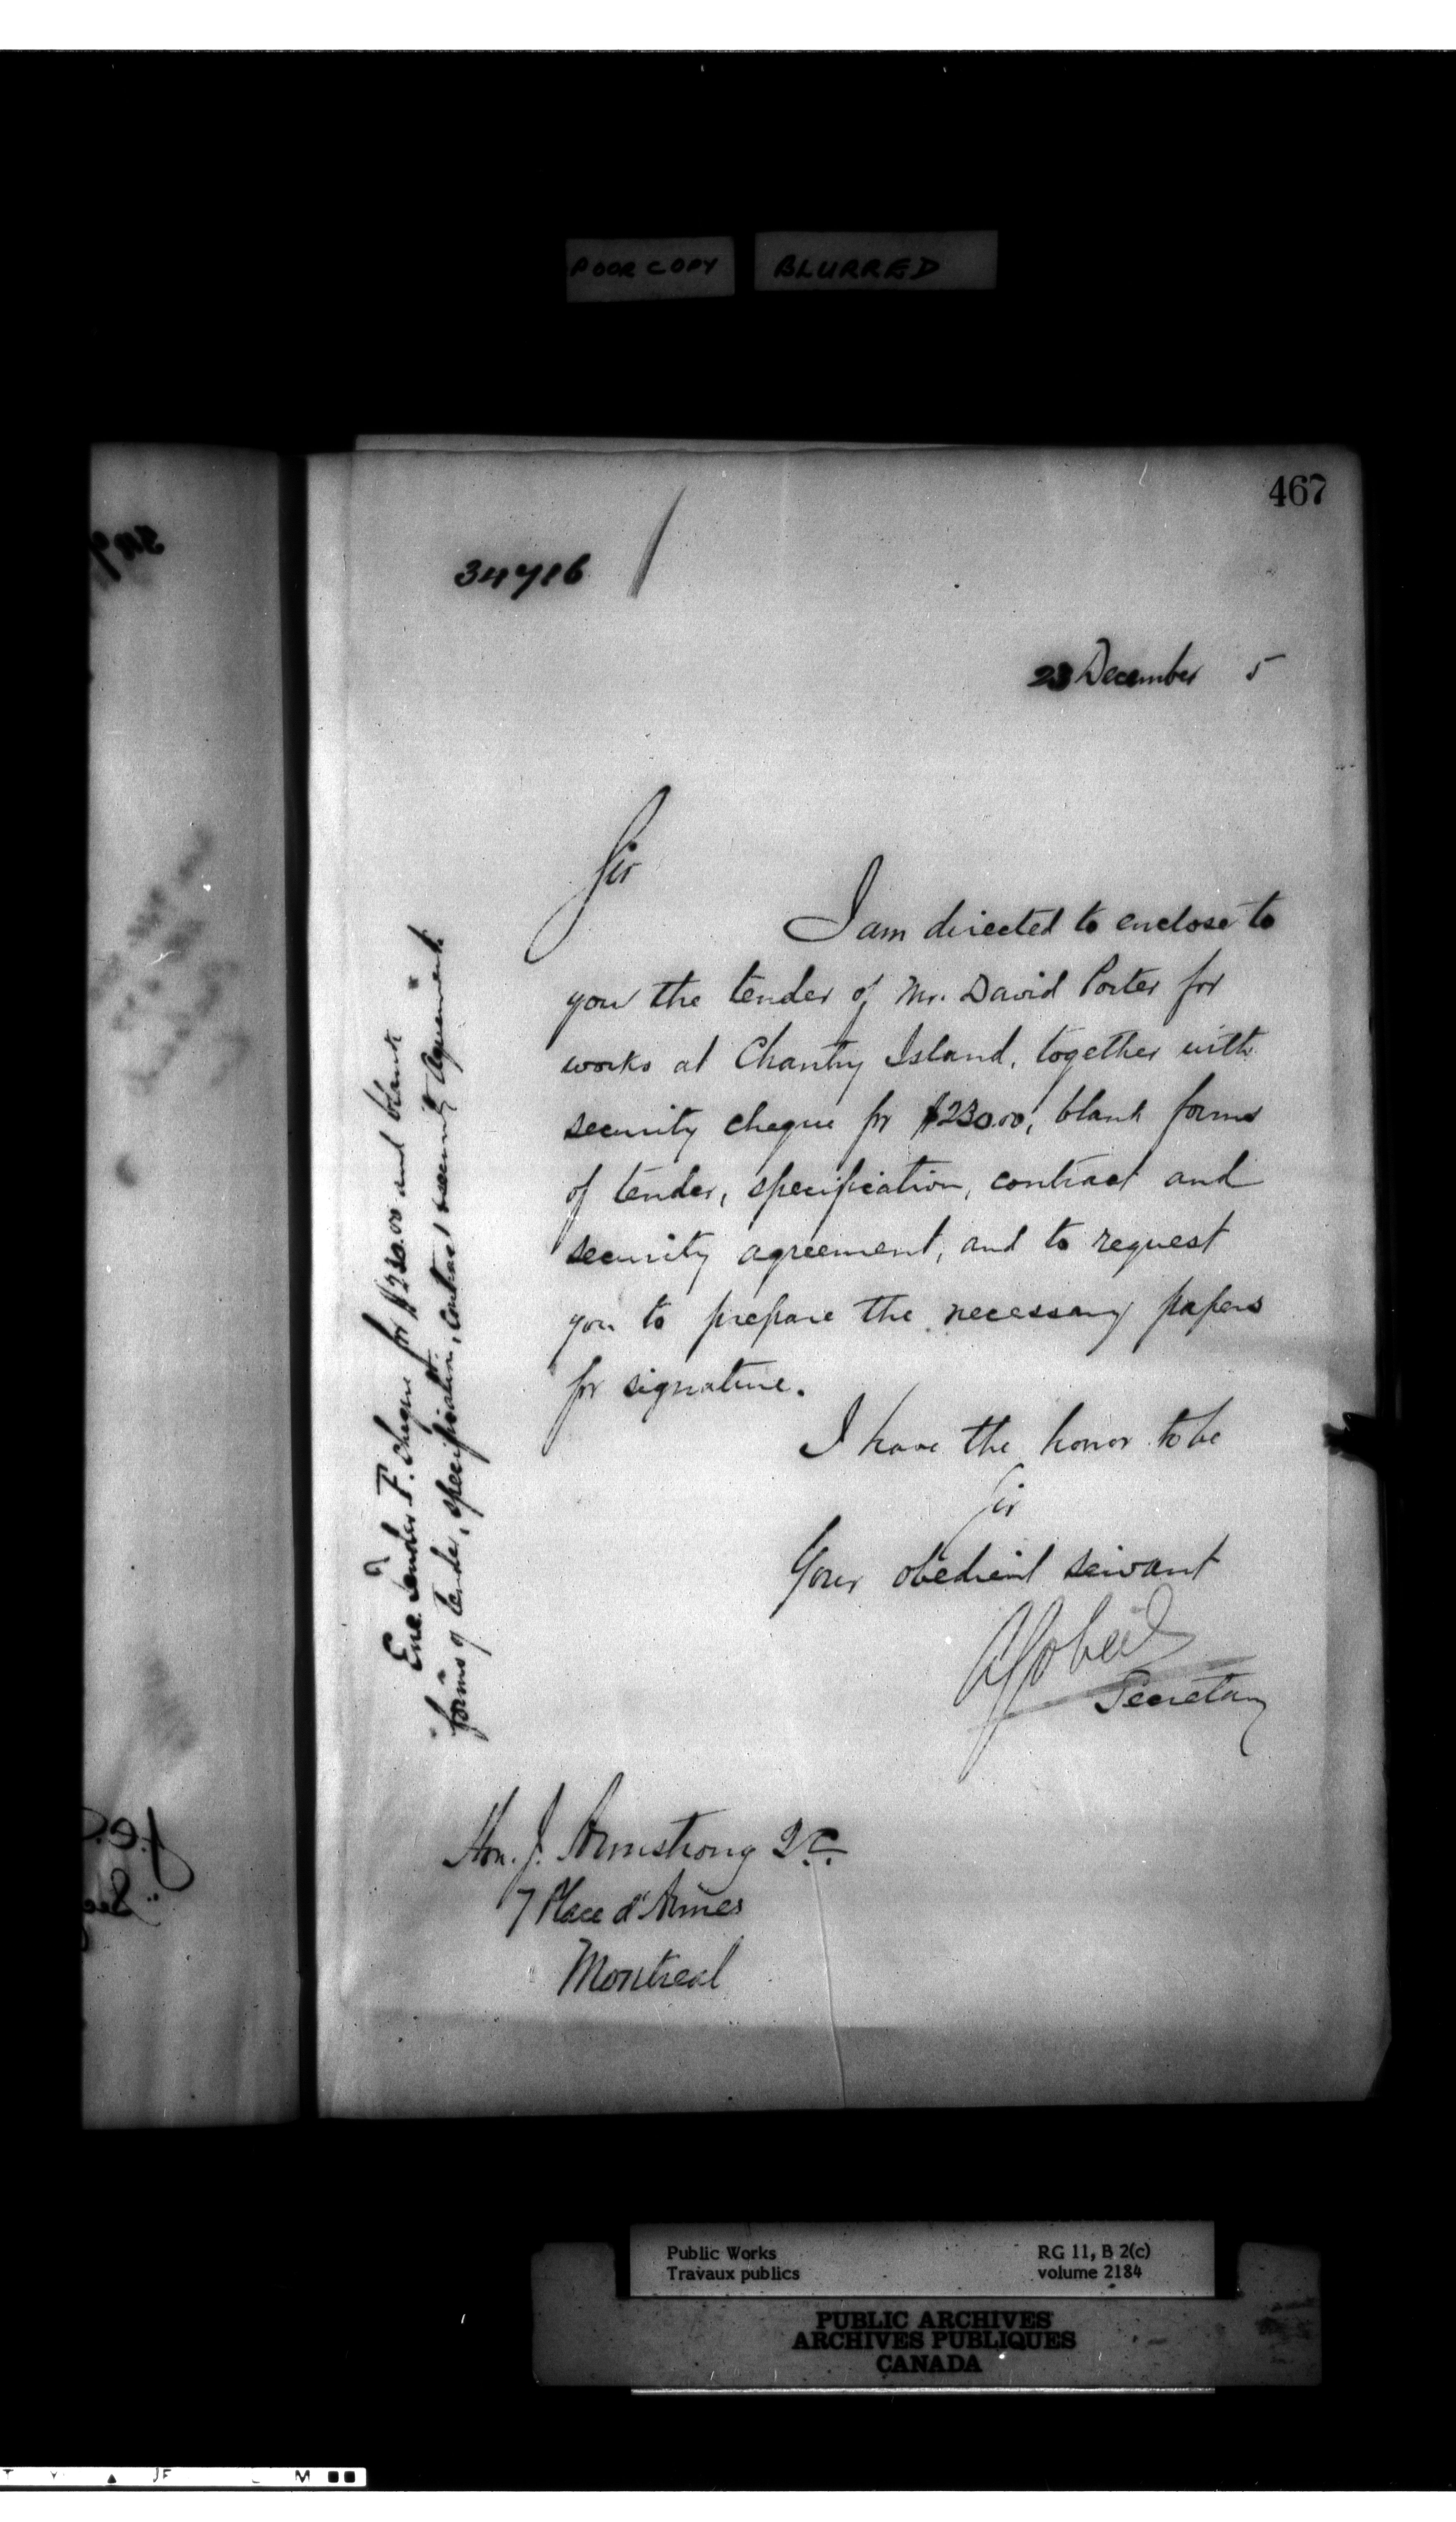 POOR COPY BLURRED
467
34716
23 December 5
Sir
I am directed to enclose to
you the tender of Mr. David Porter for
works at Chantry Island, together with
security cheque for $230.00, blank forms
of tender, specification, contract and
security agreement, and to request
you to prepare the necessary papers
for signature.
I have the honor to be
Sir
Your obedient servant
Secretary
Enc. Tender, cheque for $230.00 and blank
forms of tender, specification, contract security agreement.
Hon. J. Armstrong Q.C.
7 Place d'Armes
Montreal
Public Works RG 11, B 2(c)
Travaux publics volume 2184
PUBLIC ARCHIVES
ARCHIVES PUBLIQUES
CANADA